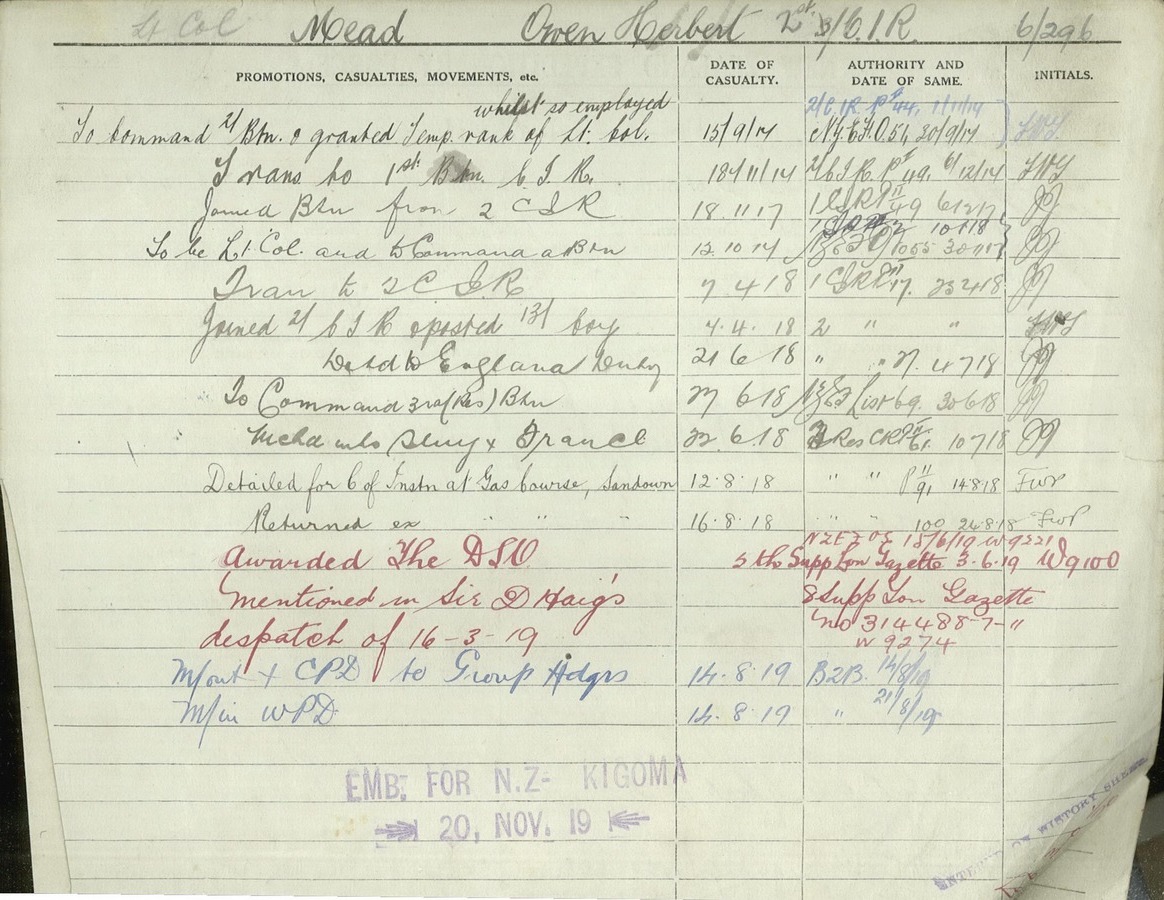 Lt Col Mead Owen Herbert 2st 3/C.I.R. 6/296
PROMOTIONS, CASUALTIES, MOVEMENTS, etc. DATE OF CASUALTY. AUTHORITY AND DATE OF SAME. INITIALS.
whilst so employed 2/C.I.R. Pt 44. 1/11/17
To command 2/ Btn. & granted Temp. rank of Lt. Col. 15/9/17 N.Z.E.F.O. 51, 20/9/17
Trans to 1st Btn. C.I.R. 18/11/17 2/C.I.R. Pt 49. 6/12/17
Joined Btn from 2 C I R 18.11.17 1 CIR PII 49 61217
10118
To be Lt. Col. and to Command a Btn 12.10.17 1055 30
Tran to 2 C.I.R 7 4 18 1 CIR PII 17. 23 4 18
Joined 2/ C I R & posted 13/ Coy 4.4.18 2 " "
Detd to England Duty 21 6 18 " " 27. 4 7 18
To Command 3rd (Res) Btn 27 6 18 NZEF List 69. 30 6 18
Mchd into Sling & France 22 6 18 3 Res CR PII 61. 10 7 18
Detailed for C of Instn at Gas Course, Sandown 12.8.18 " " PII 91 14.8.18
Returned ex " " " 16.8.18 " " 100 24.8.18
NZEF OE 15/6/19 W9221
Awarded The DSO 5th Supp Lon Gazette 3.6.19 W9100
Mentioned in Sir D Haig's 8 Supp Lon Gazette
despatch of 16-3-19 no 314488-7-"
W 9274
M/out & CPD to Group Hdqrs 14.8.19 B2B. 14/8/19
M/in WPD 14.8.19 " 21/8/19
EMB: FOR N.Z- KIGOMA
20, NOV. 19
HISTORY SHEET